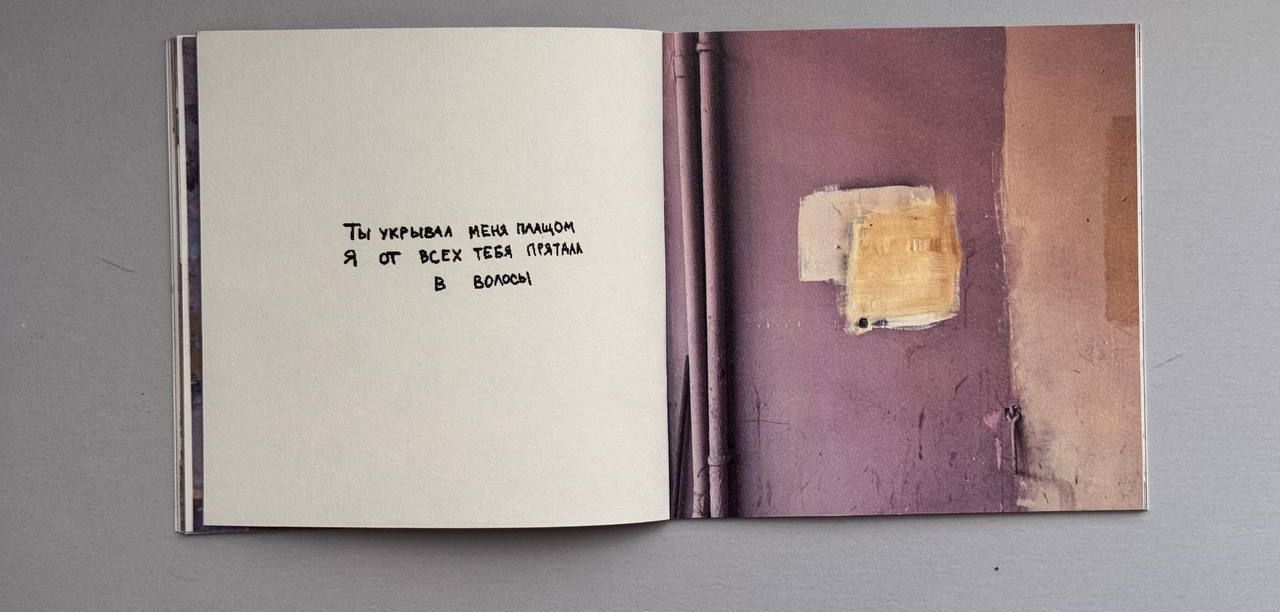 Ты укрывал меня плащом
Я от всех тебя прятала
в волосы